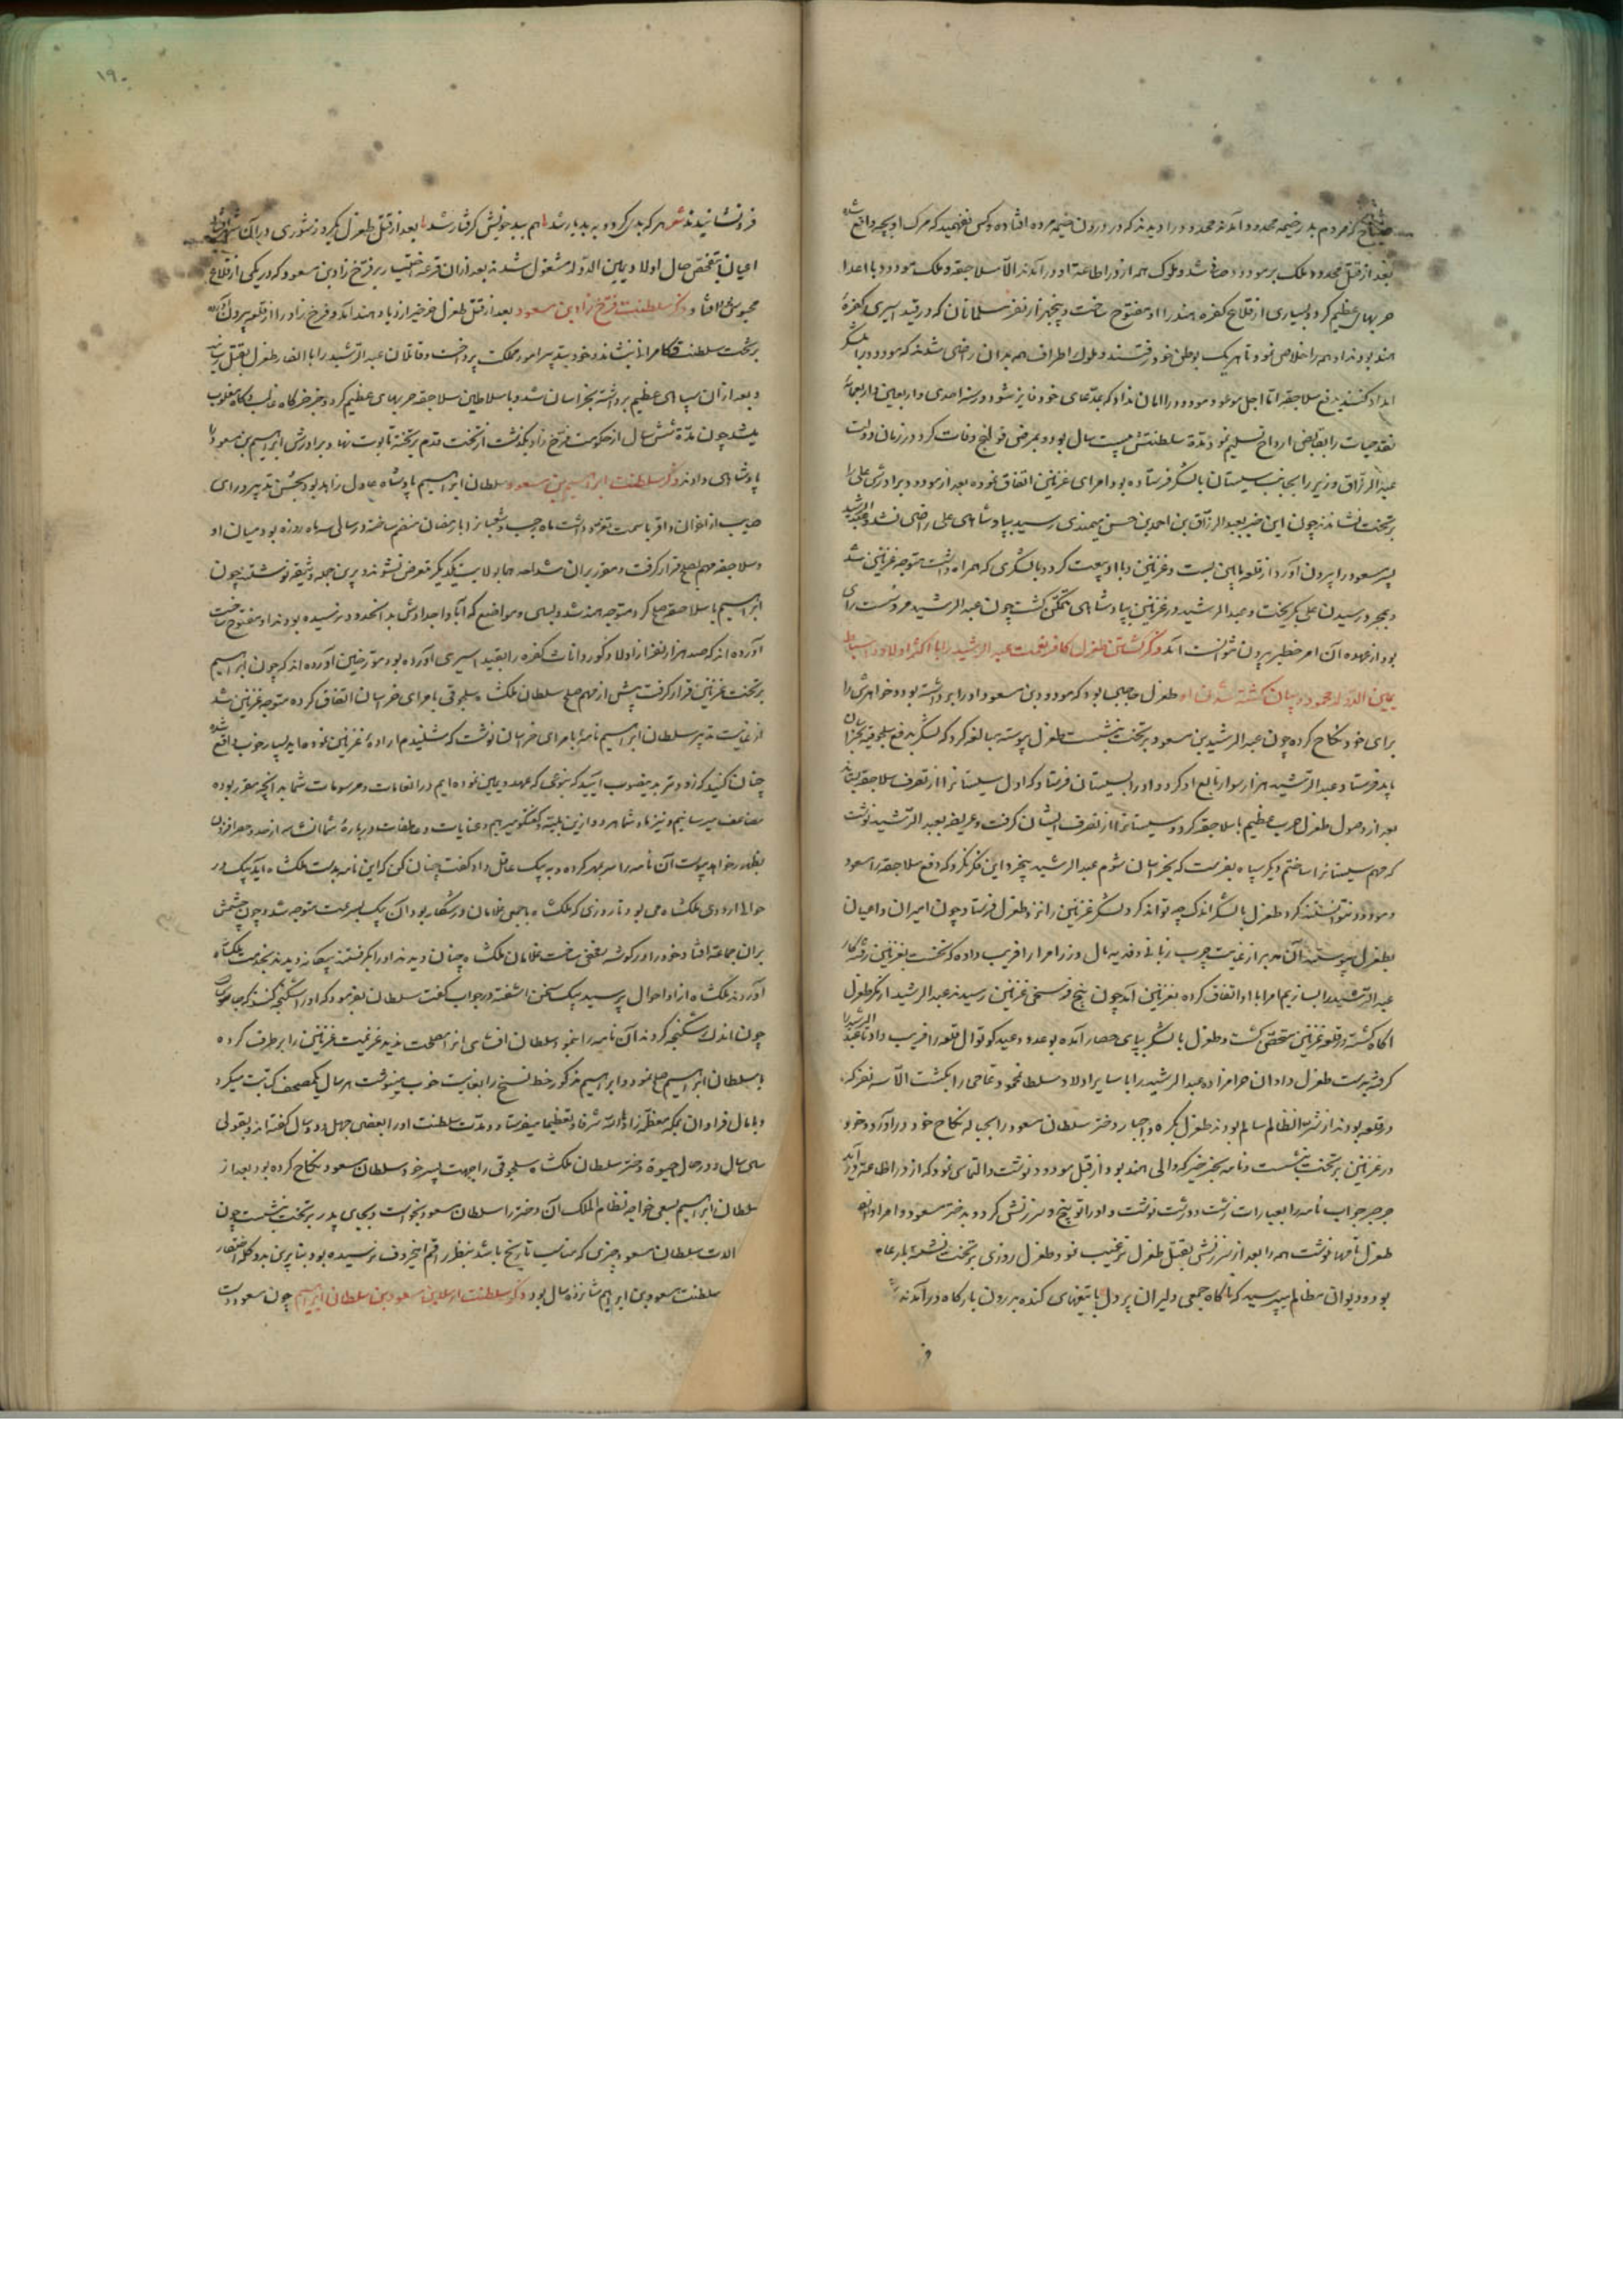 صباح که مردم بدر خیمه مجدود آمدند مجدود را دیدند که در درون خیمه مرده افتاده و کس نفهمید که مرگ او بچه واقع شده
بعد از قتل مجدود ملک بر مودود صافی شد و ملوک همه از در اطاعة او درآمدند الّا سلاجقه و ملک مودود با اعدا
حربهای عظیم کرد و بسیاری از قلاع کفره هند را او مفتوح ساخت و پنجهزار نفر مسلمانان که در قید اسیری کفرهٔ
هند بودند او همه را خلاصی نمود تا هر یک بوطن خود رفتند و ملوک اطراف همه بدان راضی شدند که مودود را بلشکر
امداد کنند بدفع سلاجقه امّا اجل موعود مودود را امان نداد که بمدّعای خود فایز شود و در سنه احدی و اربعین و اربعمایه
نقد حیات را بقابض ارواح تسلیم نمود مدّة سلطنتش بیست سال بود و بمرض قولنج وفات کرد و در زمان دولت
عبد الرزاق وزیر را بجانب سیستان با لشکر فرستاده بود امرای غزنین اتفاق نموده بعد از مودود برادرش علی را
بر تخت نشاندند چون این خبر بعبد الرزاق بن احمد بن حسن میمندی رسید بپادشاهی علی راضی نشد و عبد الرشید
پسر مسعود را بیرون آورد از قلعه مابین بست و غزنین و با او بیعت کرد و با لشکری که همراه داشت متوجه غزنین شد
و بمجرد رسیدن علی بگریخت و عبد الرشید در غزنین بپادشاهی متمکّن گشت چون عبد الرشید مرد سست رای
بود از عهده آن امر خطیر بیرون نتوانست آمد ذکر کشتن طغرل کافر نعمت عبد الرشید را با اکثر اولاد و اسباط
یمین الدوله محمود و بیان کشته شدن او طغرل حاجبی بود که مودود بن مسعود او را برداشته بود و خواهرش را
برای خود نکاح کرده چون عبد الرشید بن مسعود بر تخت نشست طغرل پیوسته مبالغه کرد که لشکر بدفع سلجوقیه بخراسان
باید فرستاد عبد الرشید هزار سوار تابع او کرد و او را بسیستان فرستاد که اول سیستان را از تصرف سلاجقه بستاند
بعد از وصول طغرل حرب عظیم با سلاجقه کرد و سیستان را از تصرف ایشان گرفت و عریضه بعبد الرّشید نوشت
که مهم سیستان را ساختم دیگر سپاه بفرست که بخراسان شوم عبد الرشید بیخرد این فکر نکرد که دفع سلاجقه را مسعود
و مودود نتوانستند کرد طغرل با لشکر اندک چه تواند کرد لشکر غزنین را نزد طغرل فرستاد و چون امیران و اعیان
بطغرل پیوستند آن مدبر از غایت چرب زبانی و فدیه مال و زر امرا را فریب داده که نخست بغزنین رفته کار
عبد الرّشید را بسازیم امرا با او اتفاق کرده بغزنین آمد چون پنج فرسخی غزنین رسیدند عبد الرشید از مکر طغول
آگاه گشته در قلعه غزنین متحصّن گشت و طغرل با لشکر بپای حصار آمده بوعده و وعید کوتوال قلعه را فریب داد تا عبد الرشید را
گرفته بدست طغرل داد و آن حرامزاده عبد الرشید را با سایر اولاد سلطان محمود تمامی را بکشت الّا سه نفر که
در قلعه بودند از شرّ آن ظالم سالم بودند طغرل بکره و اجبار دختر سلطان مسعود را بحباله نکاح خود درآورد و خود
در غزنین بر تخت نشست و نامه بجز خیر که والی هند بود از قبل مودود نوشت و التماس نمود که از در اطاعة درآید
جرجر جواب نامه را بعبارات زشت و درشت نوشت و او را توبیخ و سرزنش کرد و بدختر مسعود و امراء
طغرل نامها نوشت همه را بعد از سرزنش بقتل طغرل ترغیب نمود و طغرل روزی بر تخت نشسته بار عام
بود و دیوان مظالم میپرسید که ناگاه جمعی دلیران پر دل با تیغهای کنده بدرون بارگاه درآمدند
۱۹۰
فرونشانیدند شعر هر که بد کرد و به بد یار شد اهم ببد خویش گرفتار شد بعد از قتل طغرل یکروز شوری در آن شهر
اعیان بتفحّص حال اولاد یمین الدّوله مشغول شدند بعد از ان قرعه اختیار بر فرّخ زاد بن مسعود که در یکی از قلاع
محبوس بود افتاد ذکر سلطنت فرّخ زاد بن مسعود بعد از قتل طغرل خرخیز از دیار هند آمد و فرخ زاد را از قلعه بیرون آورده
بر تخت سلطنت و کامرانی نشاند و خود بتدبیر امور مملکت پرداخت و قاتلان عبد الرّشید را با انصار طغرل بقتل رسانید
و بعد از ان سپاهی عظیم برداشته بخراسان شد و با سلاطین سلاجقه حربهای عظیم کرد و خرخیز گاه غالب و گاه مغلوب
میشد چون مدّة شش سال از حکومت فرّخ زاد بگذشت از تخت قدم بر تخته تابوت نهاد و برادرش ابراهیم بن مسعود را
پادشاهی دادند ذکر سلطنت ابراهیم بن مسعود سلطان ابراهیم پادشاه عادل زاهد بود بحسن تدبیر و رای
صایب از اخوان و اقربا سمت تفرّد داشت ماه رجب و شعبان را با رمضان منضم ساخته در سالی سه ماه روزه بود میان او
و سلاجقه مهم بصلح قرار گرفت و مقرر بران شد احدهما بولایت یکدیگر متعرض نشوند و برین جمله وثیقه نوشتند چون
ابراهیم با سلاجقه صلح کرد متوجه هند شد و بسی مواضع که آبا و اجدادش بدانحدود نرسیده بودند او مفتوح ساخت
آورده اند که صد هزار نفر از اولاد ذکور و اناث کفره را بقید اسیری آورده بود مورّخین آورده اند که چون ابراهیم
بر تخت غزنین قرار گرفت پیش از مهم صلح سلطان ملکشاه سلجوقی با مرای خراسان اتفاق کرده متوجه غزنین شد
از غایت تدبیر سلطان ابراهیم نامه بامرای خراسان نوشت که شنیدم ارادهٔ غزنین نموده اید بسیار خوب واقع شده
چنان کنید که زودتر بدینصوب آیید که بنوعی که عهد و یمین نموده ایم در انعامات و مرسومات شما بدانچه مقرر بوده
مضاعف میرسانیم و نیز پادشاهرود ازین بلیّه و گفتگو میرهم و عنایات و عاطفات درباره شما انشاءالله از حد و حصر افزون
بظهور خواهد پیوست آن نامه را سر بمهر کرده و به پیک عاقل داد و گفت چنان کن که این نامه بدست ملکشاه آید پیک در
حوالی اردوی ملکشاه می بود تا روزی که ملکشاه با جمعی غلامان در شکار بود آن پیک بسرعت متوجه شد و چون چشمش
بران جماعة افتاد خود را در گوشه مخفی ساخت غلامان ملکشاه چنان دیدند او را بگرفتند بیگانه دیدند بخدمت ملکشاه
آوردند ملکشاه از او احوال پرسید پیک سخن آشفته در جواب گفت سلطان بفرمود که او را شکنجه کنند که جاسوس است
چون اندک شکنجه کردند آن نامه را بنمود سلطان افشای انرا مصلحت ندید عزیمت غزنین را بر طرف کرده
با سلطان ابراهیم صلح نمود و ابراهیم مذکور خط نسخ را بغایت خوب مینوشت هر سال یک مصحف کتابت میکرد
و با مال فراوان بمکه معظّمه زادها الله شرفا و تعظیما میفرستاد و مدّت سلطنت او را بعضی چهل و دو سال گفته اند و بقولی
سی سال و در حال حیوة دختر سلطان ملکشاه سلجوقی را جهت پسر خود سلطان مسعود نکاح کرده بود بعد از
سلطان ابراهیم بسعی خواجه نظام الملک آن دختر را سلطان مسعود بخواست و بجای پدر بر تخت نشست چون
الات سلطان مسعود چیزی که مناسب تاریخ باشد بنظر راقم اینحروف نرسیده بود بنابرین بدو کلمه اختصار
سلطنت مسعود بن ابراهیم شانزده سال بود ذکر سلطنت ارسلان بن مسعود بن سلطان ابراهیم چون مسعود دست